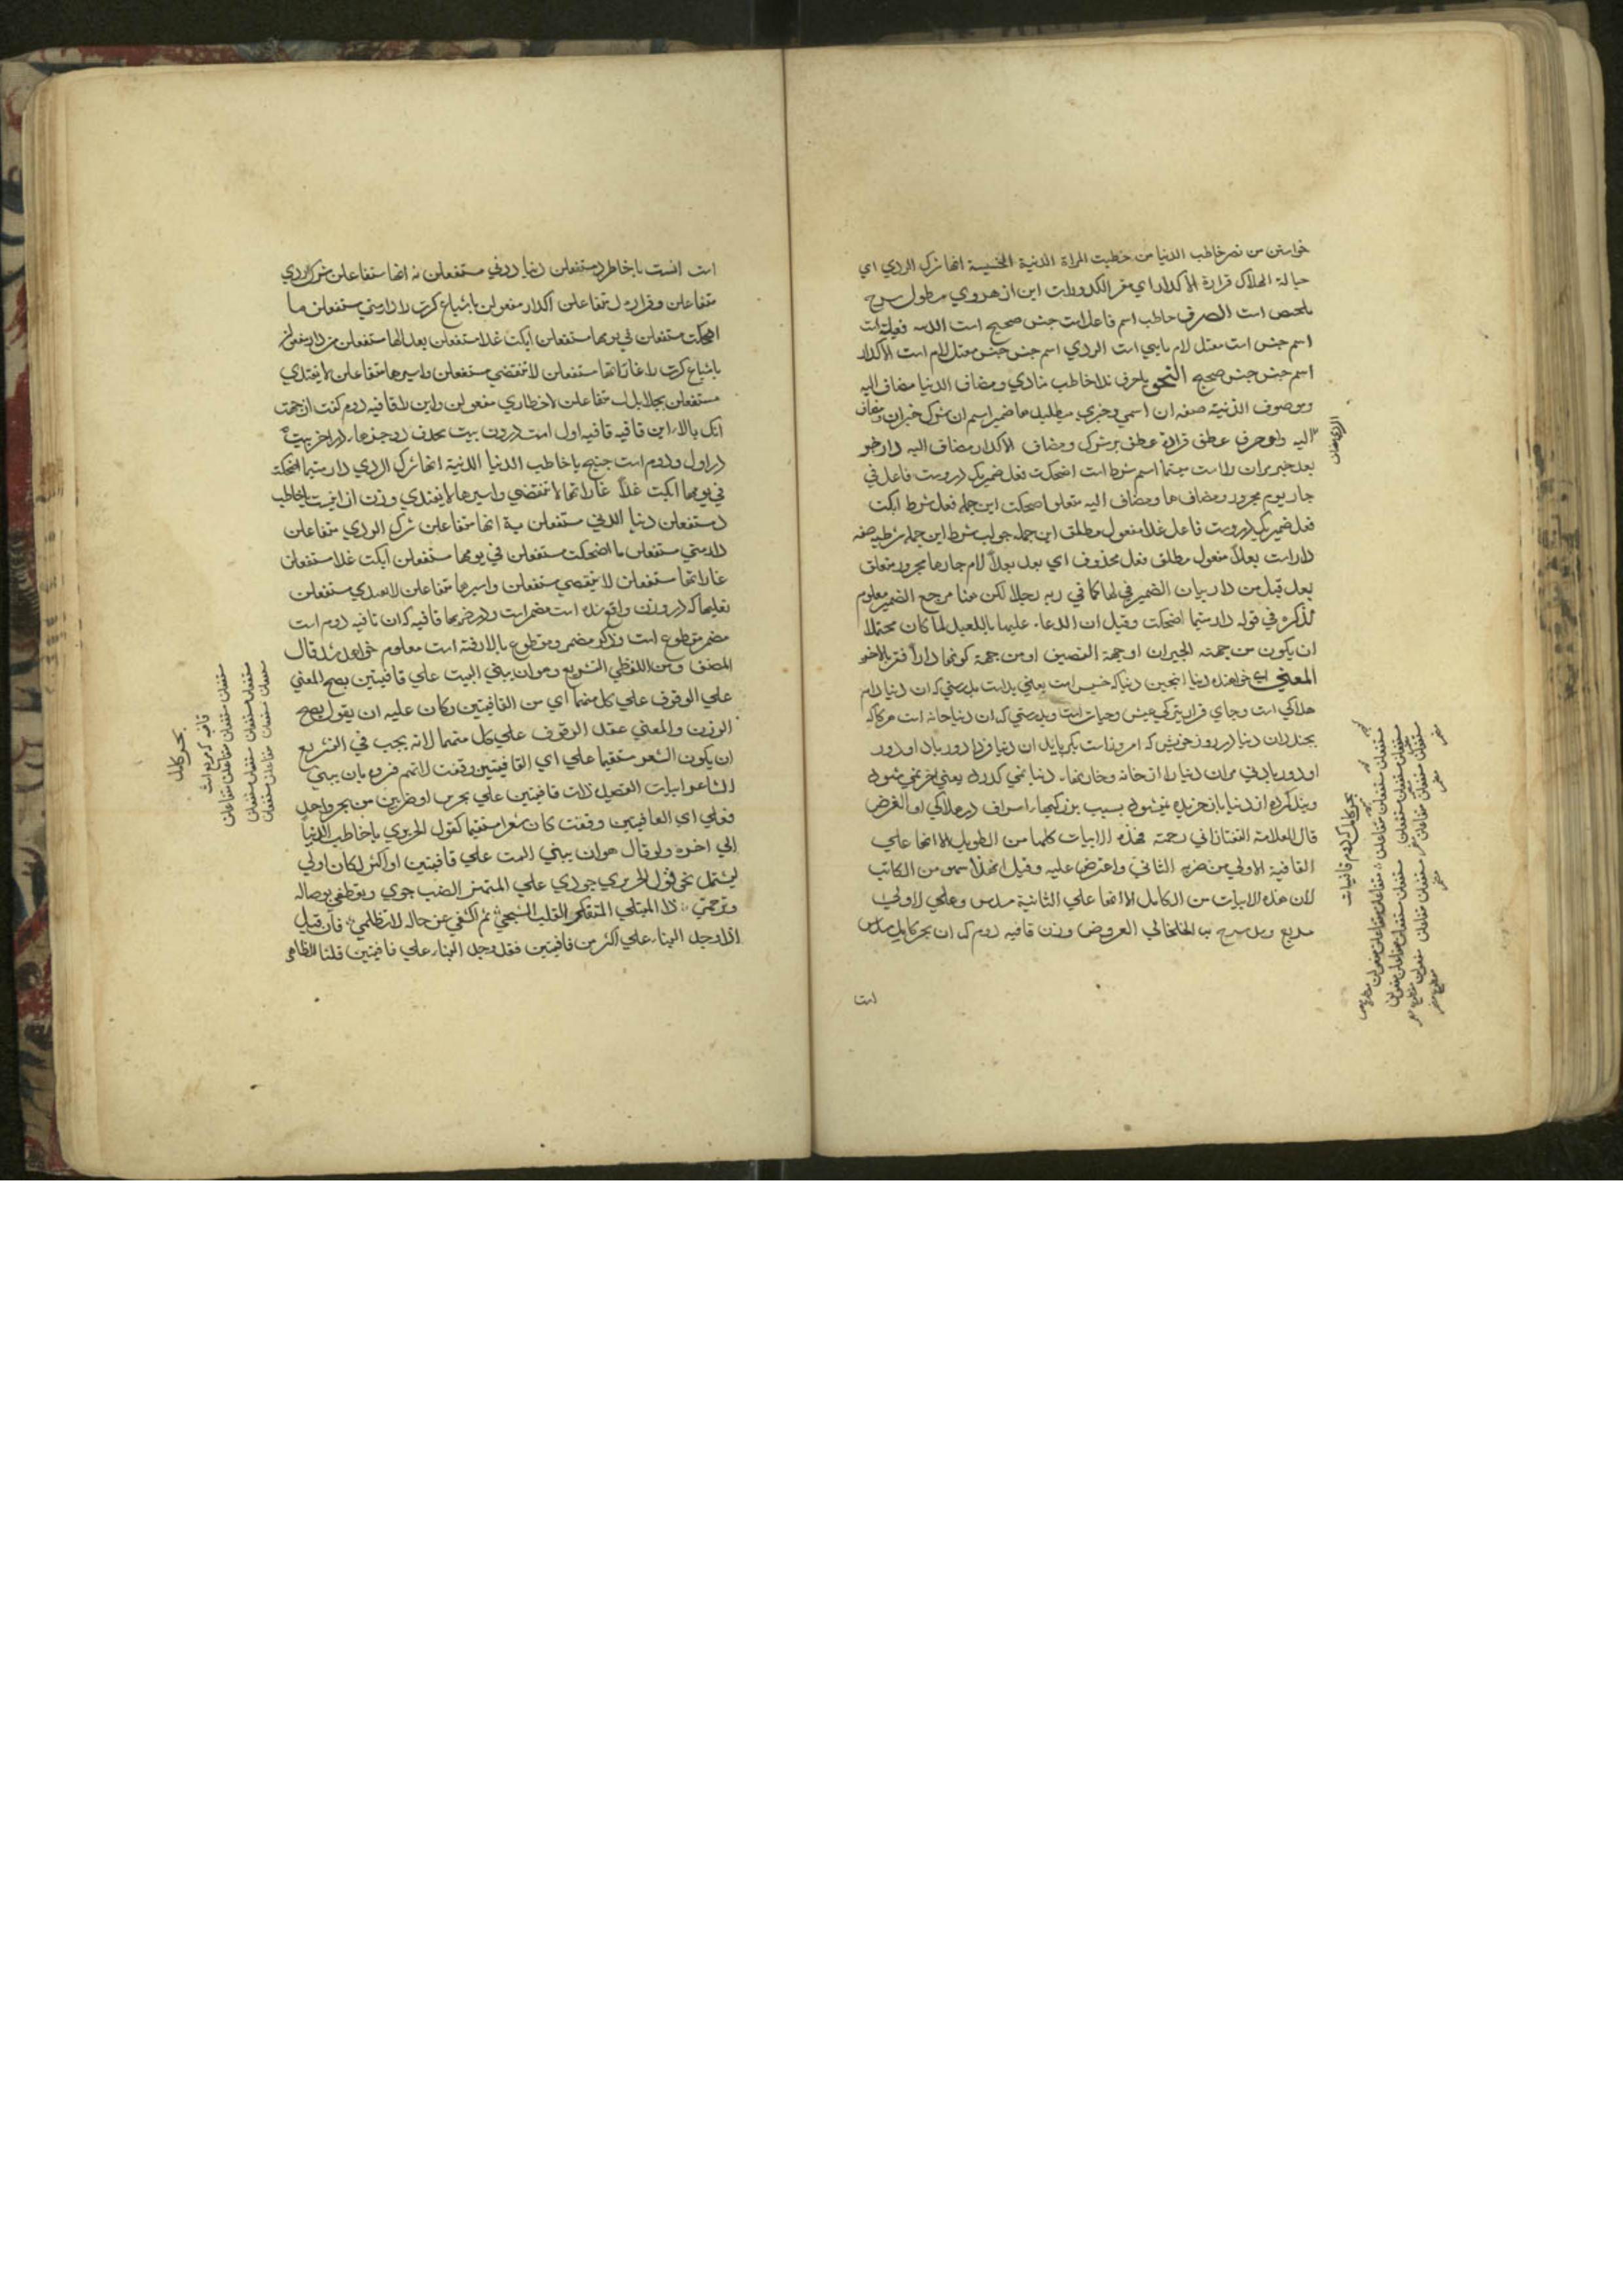 خواستن من نصر خاطب الدنيا من خطبت المراة الدنية الخسيسة انها شرك الردي اي
حبالة الهلاك قرارة الاكدار اي مقر الكدورات اين از هروي مطول شرح
ملخص است الصرف خاطب اسم فاعل است جنس صحيح است الدنيه فعيلة است
اسم جنس است معتل لام يايي است الردي اسم جنس جنس معتل لام است الاكدار
اسم جنس جنس صحيح النحو يا حرف ندا خاطب منادي و مضاف الدنيا مضاف اليه
وموصوف الدنية صفه ان اسمي وخبري ميطلبد ها ضمير اسم ان شرك خبر ان ومضاف
اليه واو حرف عطف قرارة عطف بر شرك ومضاف الاكدار مضاف اليه دار خبر
بعد خبر مران را است متيما اسم شرط است اضحكت فعل ضمير يكه دروست فاعل في
جار يوم مجرور ومضاف ها ومضاف اليه متعلق اضحكت اين جمله فعل شرط ابكت
فعل ضمير يكه دروست فاعل غدا مفعول مطلق اين جمله جواب شرط اين جمله شرطيه صفه
دار است بعدا مفعول مطلق فعل محذوف اي بعد بعدا لام جار ها مجرور متعلق
بعد قيل من دار بيان الضمير في لها كما في ربه رجلا لكن هنا مرجع الضمير معلوم
لذكره في قوله دار متيما اضحكت وقيل ان الدعاء عليها بالبعد لما كان محتملا
ان يكون من جهته الجيران او جهة المضيف او من جهة كونها دارا فتر بالاخر
المعني اي خواهنده دنيا انچنين دنيا كه خسيس است يعني بد است بدرستي كه ان دنيا دام
هلاكي است وجاي قرار تيركي عيش وحيات است وبدرستي كه ان دنيا خانه است هركاكه
بخنداند دنيا در روز خويش كه امروز است بگرياند ان دنيا فردا دور باد او دور
او دور بادني مران دنيا را از خانه و خان بها دنيا نمي گذرد يعني اخر نمي شود
وبند كرده از دنيا باز خريده نميشود بسبب بزركيهاء اسراف در هلاكي او الغرض
قال العلامة التفتازاني رحمته فهذه الابيات كلها من الطويل الا انها علي
القافية الاولي من ضربه الثاني واعترض عليه وقيل ان هذا سهو من الكاتب
لان هذه الابيات من الكامل الا انها علي الثانية مسدس وعلي الاولي
مربع ودر شرح الخلخالي العروض وزن قافيه دوم كه ان بحر كامل مسدس
است
بحر كامل كه دوم قافيات
است اينست يا خاطب د مستفعلن دنيا دوني مستفعلن ية انها متفاعلن شرك الردي
متفاعلن وقرارة ل متفاعلن اكدار مفعولن باشباع كرت را دار متي مستفعلن ما
اضحكت مستفعلن في يومها مستفعلن ابكت غدا مستفعلن بعدا لها مستفعلن من دار فعلن
باشباع كرت را غاراتها مستفعلن لا تنقضي مستفعلن واسيرها متفاعلن لا يفتدي
مستفعلن بجلايل ل متفاعلن اخطاري مفعولن واين را قافيه دوم كفت از جهت
انك بالاء اين قافيه قافيه اول است درون بيت بحذف دو جزءها در اخر بيت
در اول ودوم است چنيچه يا خاطب الدنيا الدنية انها شرك الردي دار متيما اضحكت
في يومها ابكت غدا غاراتها لا تنقضي واسيرها لا يفتدي وزن ان اينست يا خاطب
د مستفعلن دنيا الدني مستفعلن ية انها متفاعلن شرك الردي متفاعلن
دار متي مستفعلن ما اضحكت مستفعلن في يومها مستفعلن ابكت غدا مستفعلن
غاراتها مستفعلن لا تنقضي مستفعلن واسيرها متفاعلن لا يفتدي مستفعلن
مضمر مقطوع است وذكر مضمر ومقطوع بالا رفته است معلوم خواهد شد قال
المصنف ومن اللفظي التشريع وهو ان يبني البيت علي قافيتين يصح المعني
علي الوقوف علي كل منهما اي من القافيتين وكان عليه ان يقول يصح
الوزن والمعني عند الوقوف علي كل منهما لانه يجب في التشريع
ان يكون الشعر مستقيما علي اي القافيتين وقفت لانهم فسروه بان يبني
الشاعر ابيات القصيدة ذات قافيتين علي بحرين او ضربين من بحر واحد
فعلي اي القافيتين وقفت كان شعرا مستقيما كقول الحريري يا خاطب الدنيا
الي اخره ولو قال هو ان يبني البيت علي قافيتين او اكثر لكان اولي
ليشتمل نحو قول الحريري جودي علي المتهتر الصب جوي وتعطفي بوصاله
وترحمي ذا المبتلي المتفكر القلب الشجي ثم اكشفي عن حاله لا تظلمي فان قيل
اذا وجد البناء علي اكثر من قافيتين فقد وجد البناء علي قافيتين قلنا الظاهر
بحر كامل